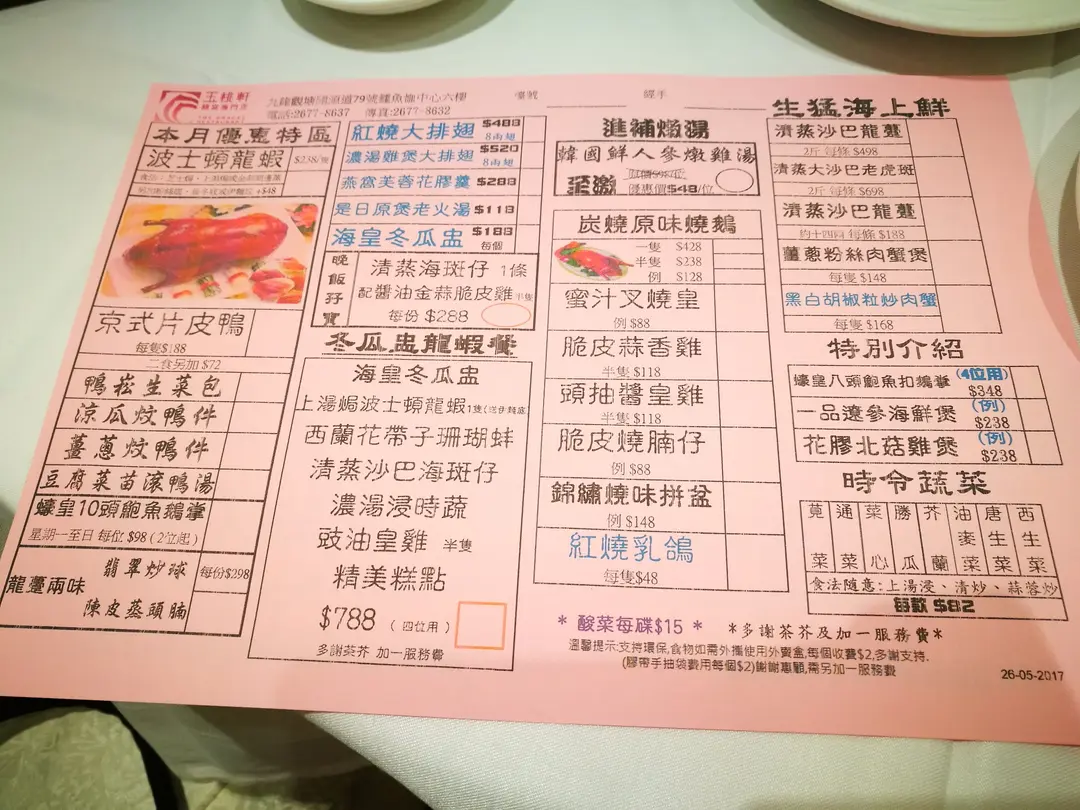 玉桃軒
九龍觀塘開源道79號鱷魚恤中心六樓
電話:2677-8637 傳真:2677-8632
檯號
經手
本月優惠特區
波士頓龍蝦 $238/隻
$48
京式片皮鴨
每隻$188
二食另加 $72
鴨崧生菜包
涼瓜炆鴨件
薑蔥炆鴨件
豆腐菜苗滾鴨湯
蠔皇10頭鮑魚鵝掌
星期一至日 每位 $98 (2位起)
龍躉兩味
翡翠炒球
陳皮蒸頭腩
每份$298
紅燒大排翅 $488
8兩翅
濃湯雞煲大排翅 $520
8兩翅
燕窩芙蓉花膠羹 $288
是日原煲老火湯 $118
海皇冬瓜盅 $188
每個
晚飯孖寶
清蒸海斑仔 1條
配醬油金蒜脆皮雞半隻
每份 $288
冬瓜盅龍蝦餐
海皇冬瓜盅
上湯焗波士頓龍蝦1隻(送伊麵底)
西蘭花帶子珊瑚蚌
清蒸沙巴海斑仔
濃湯浸時蔬
豉油皇雞 半隻
精美糕點
$788 (四位用)
多謝茶芥 加一服務費
進補燉湯
韓國鮮人參燉雞湯
優惠價$48/位
炭燒原味燒鵝
一隻 $428
半隻 $238
例 $128
蜜汁叉燒皇
例 $88
脆皮蒜香雞
半隻 $118
頭抽醬皇雞
半隻 $118
脆皮燒腩仔
例 $88
錦繡燒味拼盆
例 $148
紅燒乳鴿
每隻$48
生猛海上鮮
清蒸沙巴龍躉
2斤 每條 $498
清蒸大沙巴老虎斑
2斤 每條 $698
清蒸沙巴龍躉
約十四兩 每條 $188
薑蔥粉絲肉蟹煲
每隻 $148
黑白胡椒粒炒肉蟹
每隻 $168
特別介紹
蠔皇八頭鮑魚扣鵝掌 (4位用)
$348
一品遼參海鮮煲 (例)
$238
花膠北菇雞煲 (例)
$238
時令蔬菜
莧菜
通菜
菜心
勝瓜
芥蘭
油麥菜
唐生菜
西生菜
食法隨意:上湯浸、清炒、蒜蓉炒
每款 $82
* 酸菜每碟$15 *
*多謝茶芥及加一服務費*
溫馨提示:支持環保,食物如需外攜使用外賣盒,每個收費$2,多謝支持.
(膠帶手抽袋費用每個$2)謝謝惠顧,需另加一服務費
26-05-2017